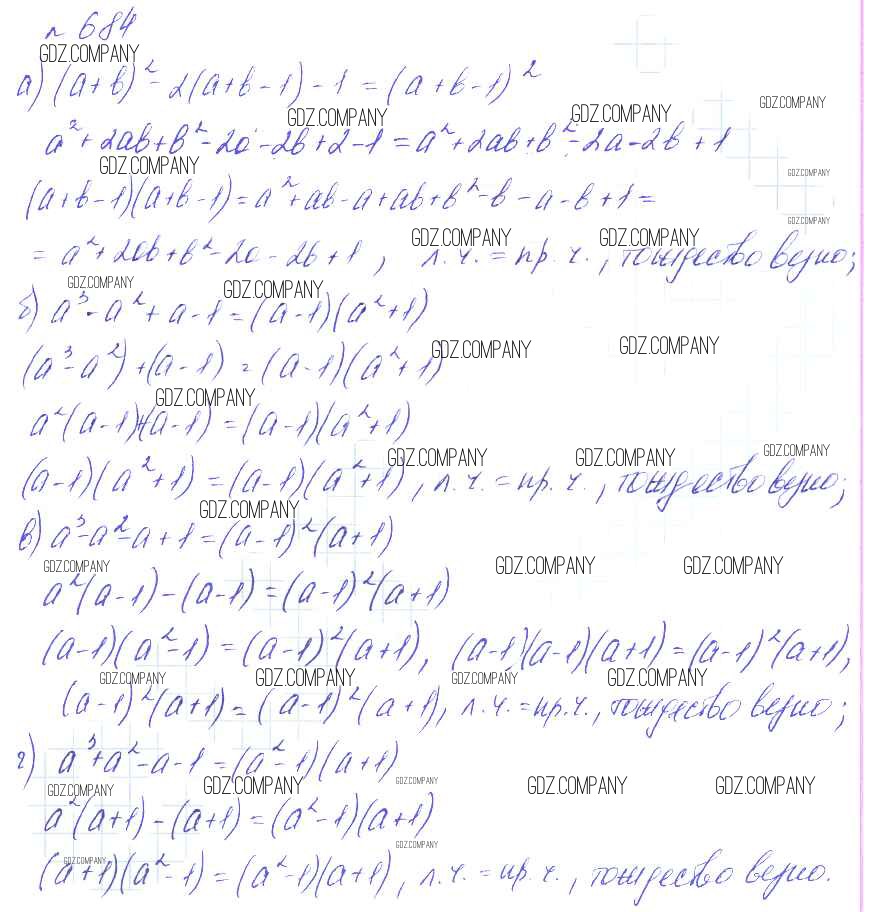 № 684
GDZ.COMPANY
а) (a+b)² - 2(a+b-1) - 1 = (a+b-1)²
GDZ.COMPANY GDZ.COMPANY GDZ.COMPANY
a² + 2ab + b² - 2a - 2b + 2 - 1 = a² + 2ab + b² - 2a - 2b + 1
GDZ.COMPANY GDZ.COMPANY
(a+b-1)(a+b-1) = a² + ab - a + ab + b² - b - a - b + 1 =
GDZ.COMPANY
GDZ.COMPANY GDZ.COMPANY
= a² + 2ab + b² - 2a - 2b + 1, л.ч. = пр.ч., тождество верно;
GDZ.COMPANY GDZ.COMPANY
б) a³ - a² + a - 1 = (a-1)(a²+1)
GDZ.COMPANY GDZ.COMPANY
(a³ - a²) + (a-1) = (a-1)(a²+1)
GDZ.COMPANY
a²(a-1)+(a-1) = (a-1)(a²+1)
GDZ.COMPANY GDZ.COMPANY GDZ.COMPANY
(a-1)(a²+1) = (a-1)(a²+1), л.ч. = пр.ч., тождество верно;
GDZ.COMPANY
в) a³ - a² - a + 1 = (a-1)²(a+1)
GDZ.COMPANY GDZ.COMPANY GDZ.COMPANY
a²(a-1) - (a-1) = (a-1)²(a+1)
(a-1)(a²-1) = (a-1)²(a+1), (a-1)(a-1)(a+1) = (a-1)²(a+1),
GDZ.COMPANY GDZ.COMPANY GDZ.COMPANY GDZ.COMPANY
(a-1)²(a+1) = (a-1)²(a+1), л.ч. = пр.ч., тождество верно;
г) a³ + a² - a - 1 = (a²-1)(a+1)
GDZ.COMPANY GDZ.COMPANY GDZ.COMPANY GDZ.COMPANY GDZ.COMPANY
a²(a+1) - (a+1) = (a²-1)(a+1)
GDZ.COMPANY GDZ.COMPANY
(a+1)(a²-1) = (a²-1)(a+1), л.ч. = пр.ч., тождество верно.